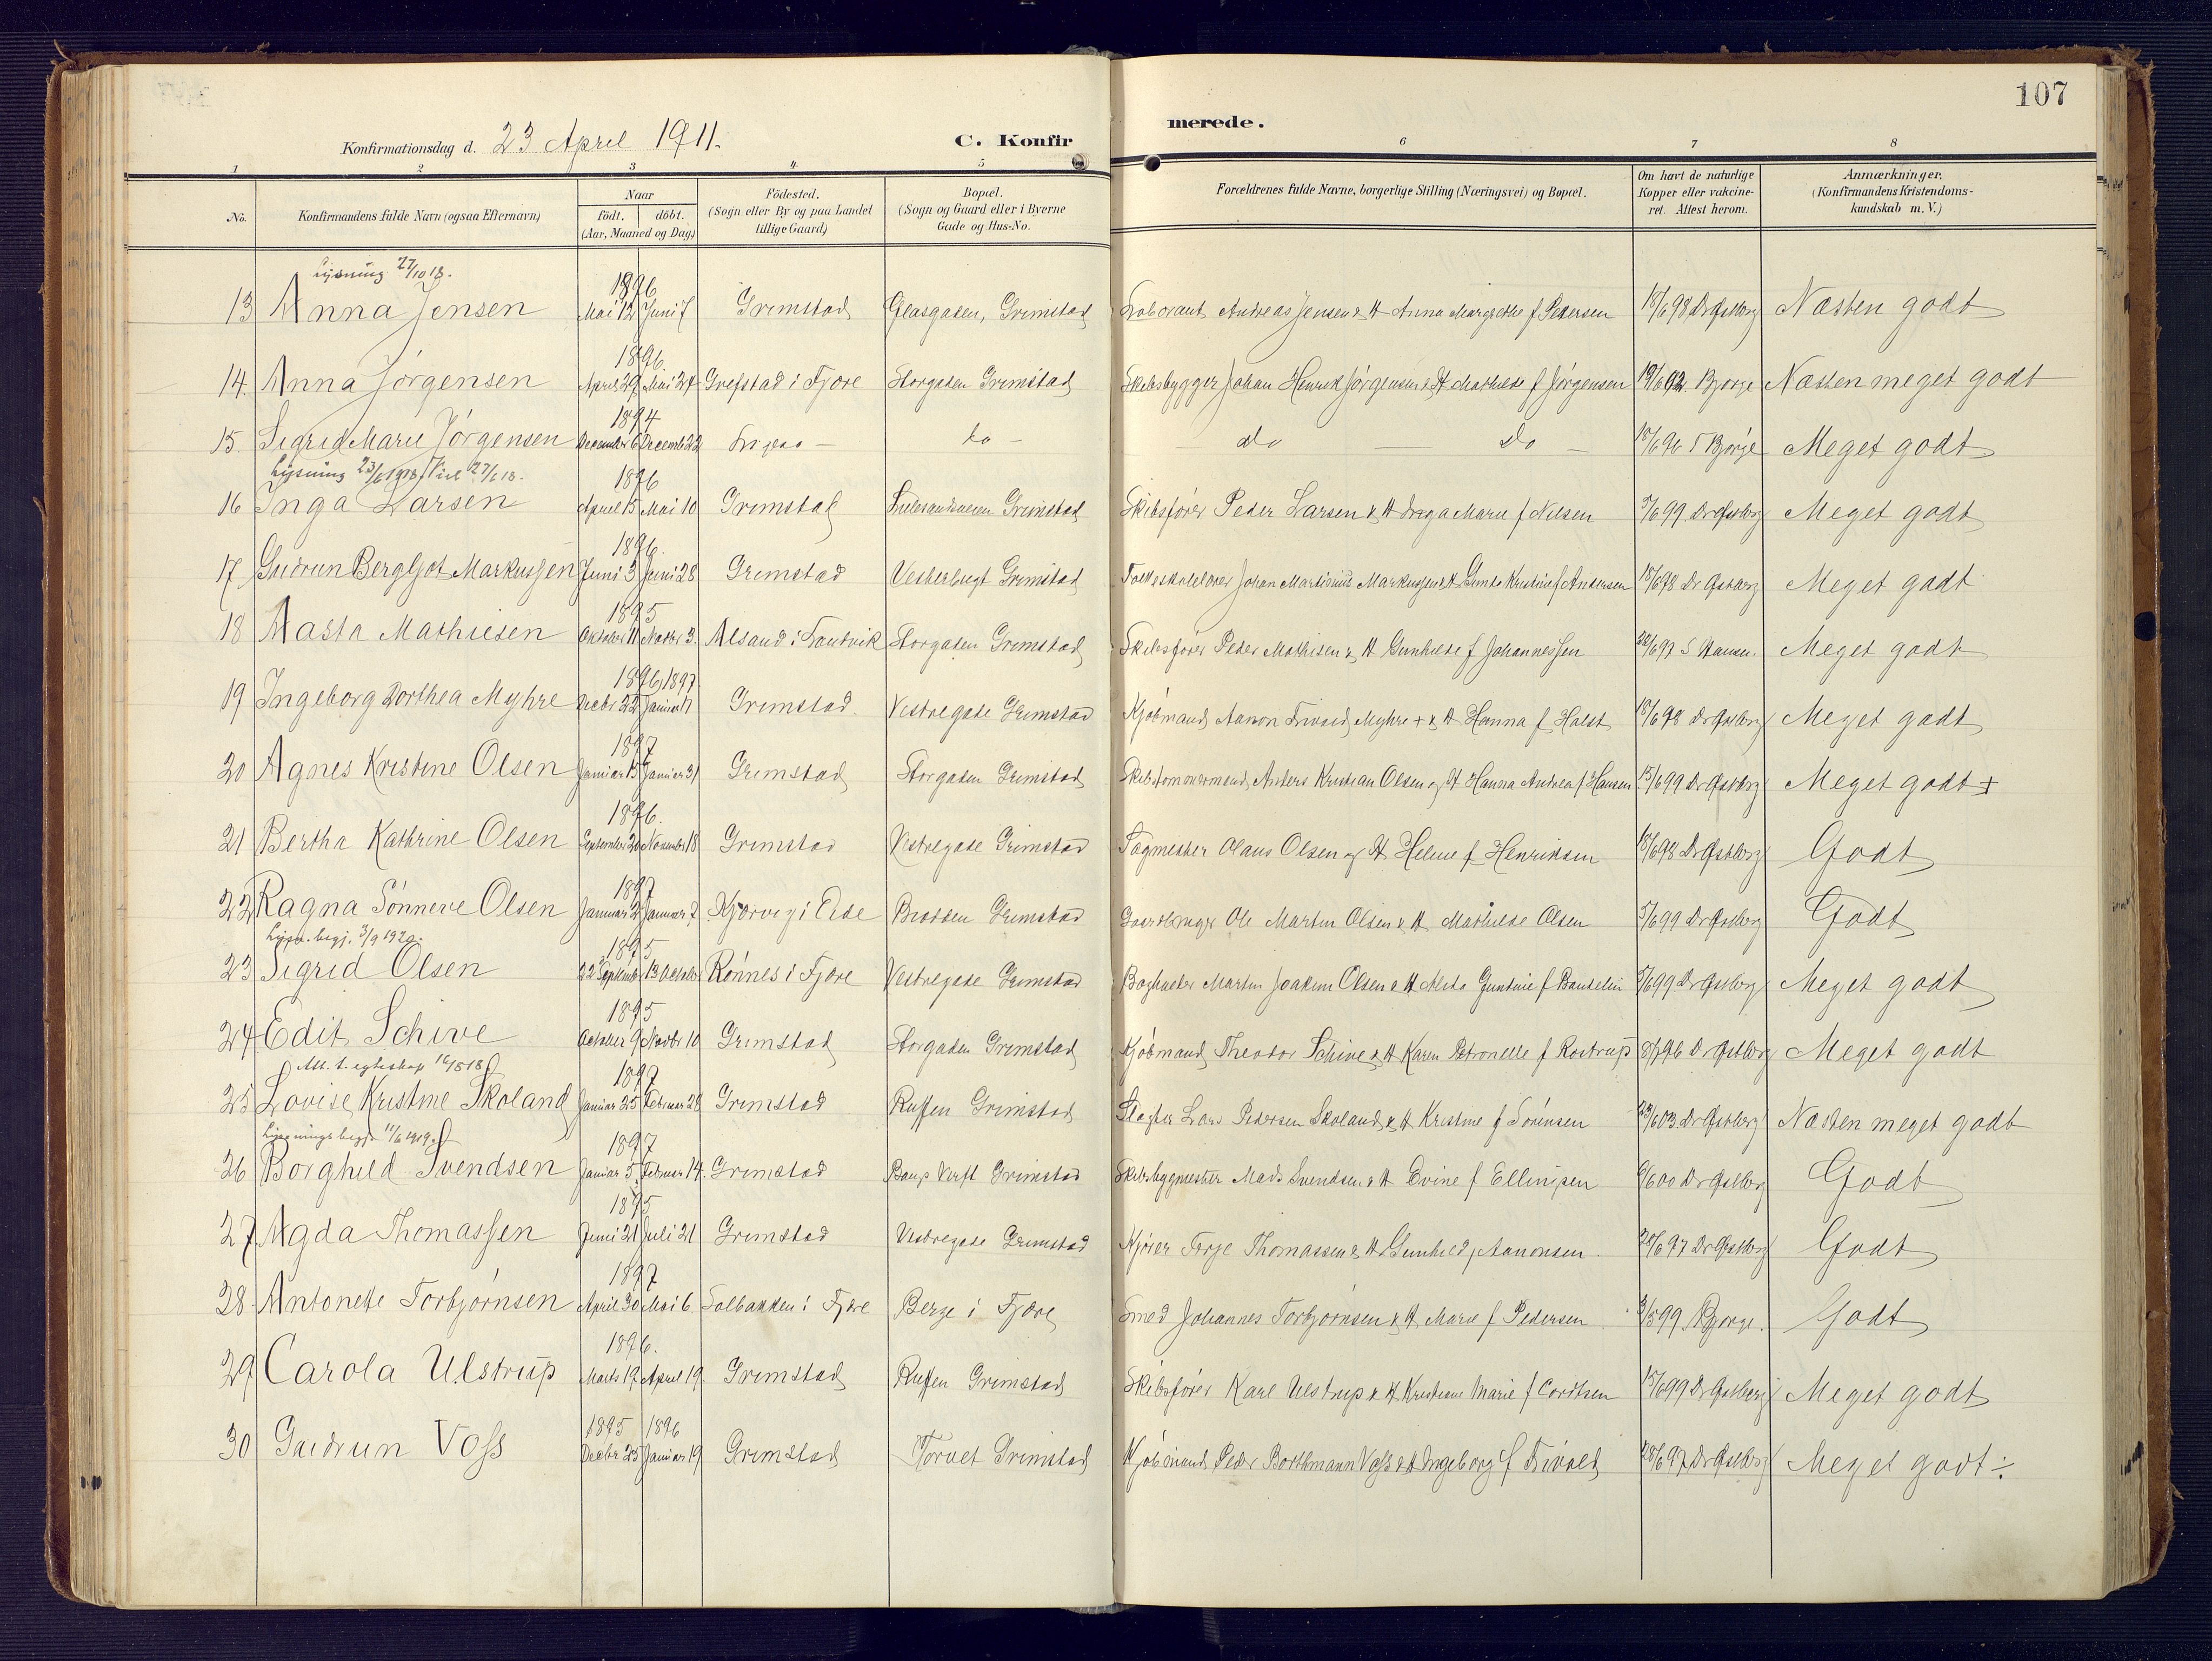 107
Konfirmationsdag d. 23 April 1911.
C. Konfirmerede.
1 2 3 4 5 6 7 8
No.
Konfirmandens fulde Navn (ogsaa Efternavn)
Naar
födt. döbt.
(Aar, Maaned og Dag)
Födested.
(Sogn eller By og paa Landet
tillige Gaard)
Bopæl.
(Sogn og Gaard eller i Byerne
Gade og Hus-No.
Forældrenes fulde Navne, borgerlige Stilling (Næringsvei) og Bopæl.
Om havt de naturlige
Kopper eller vakcine-
ret. Attest herom.
Anmærkninger.
(Konfirmandens Kristendoms-
kundskab m. V.)
Lysning 27/10 18.
1896
13 Anna Jensen Mai 12 Juni 7 Grimstad Glasgaden, Grimstad Laborant Andreas Jensen & H Anna Margrethe f Pedersen 18/6 98 Dr Østberg Næsten godt
1896.
14. Anna Jørgensen April 29 Mai 27 Grefstad i Fjære Storgaden Grimstad Skibsbygger Johan Henrik Jørgensen & H Mathilde f Jørgensen 19/6 02. Bjorge Næsten meget godt
1894
15. Sigrid Marie Jørgensen December 6 Decemb 22 do - do do 18/6 96 Bjorge Meget godt
Lysning 23/6 1918. Viet 27/6 18.
1896
16 Inga Larsen April 15 Mai 10 Grimstad Lillesandsveien Grimstad Skibsfører Peder Larsen & H Inga Marie f Nilsen 5/6 99. Dr Østberg Meget godt
1896.
17 Gudrun Bergljot Markussen Juni 3 Juni 28 Grimstad Vesterbugt Grimstad Folkeskolelærer Johan Martinius Markussen & H Gunda Kristine f Andersen 18/6 98 Dr Østberg Meget godt
1895
18 Aasta Mathiesen Oktober 11 Novbr 3. Alsand i Landvik Storgaden Grimstad Skibsfører Peder Mathisen & H Gunhilde f Johannessen 28/6 97 S Hansen. Meget godt
1896 1897
19 Ingeborg Dorthea Myhre Decbr 22 Januar 17 Grimstad. Vestregade Grimstad Kjøbmand Aanon Frivold Myhre + & H Hanna f Holst 18/6 98 Dr Østberg Meget godt
1897
20 Agnes Kristine Olsen Januar 15 Januar 31 Grimstad Storgaden Grimstad Skibstømmermand Anders Kristian Olsen og H Hanna Andrea f Hansen 15/6 99 Dr Østberg Meget godt +
1896.
21 Bertha Kathrine Olsen September 20 November 18 Grimstad Vestregade Grimstad Sagmester Olaus Olsen og H Helene f Henriksen 18/6 98 Dr Østberg Godt
1897
22 Ragna Sønneve Olsen Januar 2 Januar 7 Kjørvig i Eide Brodden Grimstad Ole Martin Olsen & H Mathilde Olsen 5/6 99 Dr Østberg Godt
Lysn. begj. 3/9 1920.
1895
23 Sigrid Olsen 22 Septemb 13 October Rønnes i Fjære Vestregade Grimstad Martin Joakim Olsen & H Alida Guntine f 5/6 99 Dr Østberg Meget godt
1895
24 Edit Schive October 9 Novbr 10 Grimstad Storgaden Grimstad Kjøbmand Theodor Schive & H Karen Petronelle f Rostrup 8/7 96 Dr Østberg Meget godt
Att. t. egteskap 16/5 18
1897
25 Lovise Kristine Skoland Januar 25 Februar 28 Grimstad Ruffen Grimstad Slagter Lars Pedersen Skoland & H Kristine f Sørensen 23/6 03 Dr Østberg Næsten meget godt
Lysnings begj. 11/6 1919.
1897
26 Borghild Svendsen Januar 5. Februar 14. Grimstad Bangs Verft Grimstad Skibsbygmester Mads Svendsen & H Evine f Ellingsen 6/6 00 Dr Østberg Godt
1895
27 Agda Thomassen Juni 21 Juli 21 Grimstad Vestregade Grimstad Kjører Terje Thomassen & H Gunhild f Aanonsen 28/6 97 Dr Østberg Godt
1897
28. Antonette Torbjørnsen April 30 Mai 6. Solbakken i Fjære Berge i Fjære Smed Johannes Torbjørnsen & H Marie f Pedersen 3/5 99 Bjorge. Godt
1896.
29 Carola Ulstrup Marts 19 April 19. Grimstad Ruffen Grimstad Skibsfører Karl Ulstrup & H Kristiane Marie f Cordtsen 15/6 99 Dr Østberg Meget godt
1895 1896
30 Gudrun Voss Decbr 25 Januar 19 Grimstad Torvet Grimstad Kjøbmand Peder Borthmann Voss & H Ingeborg f Frivold 28/6 97 Dr Østberg Meget godt ÷